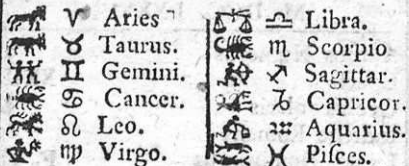 ♈ Aries
♉ Taurus.
♊ Gemini.
♋ Cancer.
♌ Leo.
♍ Virgo.
♎ Libra.
♏ Scorpio
♐ Sagittar.
♑ Capricor.
♒ Aquarius.
♓ Piſces.